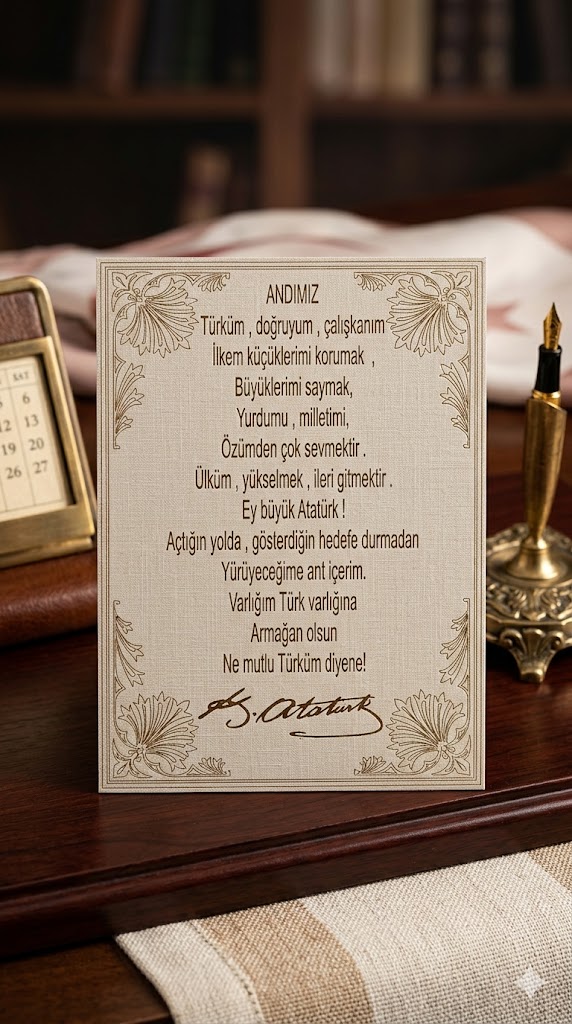 ANDIMIZ
Türküm , doğruyum , çalışkanım
İlkem küçüklerimi korumak ,
Büyüklerimi saymak,
Yurdumu , milletimi,
Özümden çok sevmektir .
Ülküm , yükselmek , ileri gitmektir .
Ey büyük Atatürk !
Açtığın yolda , gösterdiğin hedefe durmadan
Yürüyeceğime ant içerim.
Varlığım Türk varlığına
Armağan olsun
Ne mutlu Türküm diyene!
K. Atatürk
SAT
5 6
12 13
19 20
26 27